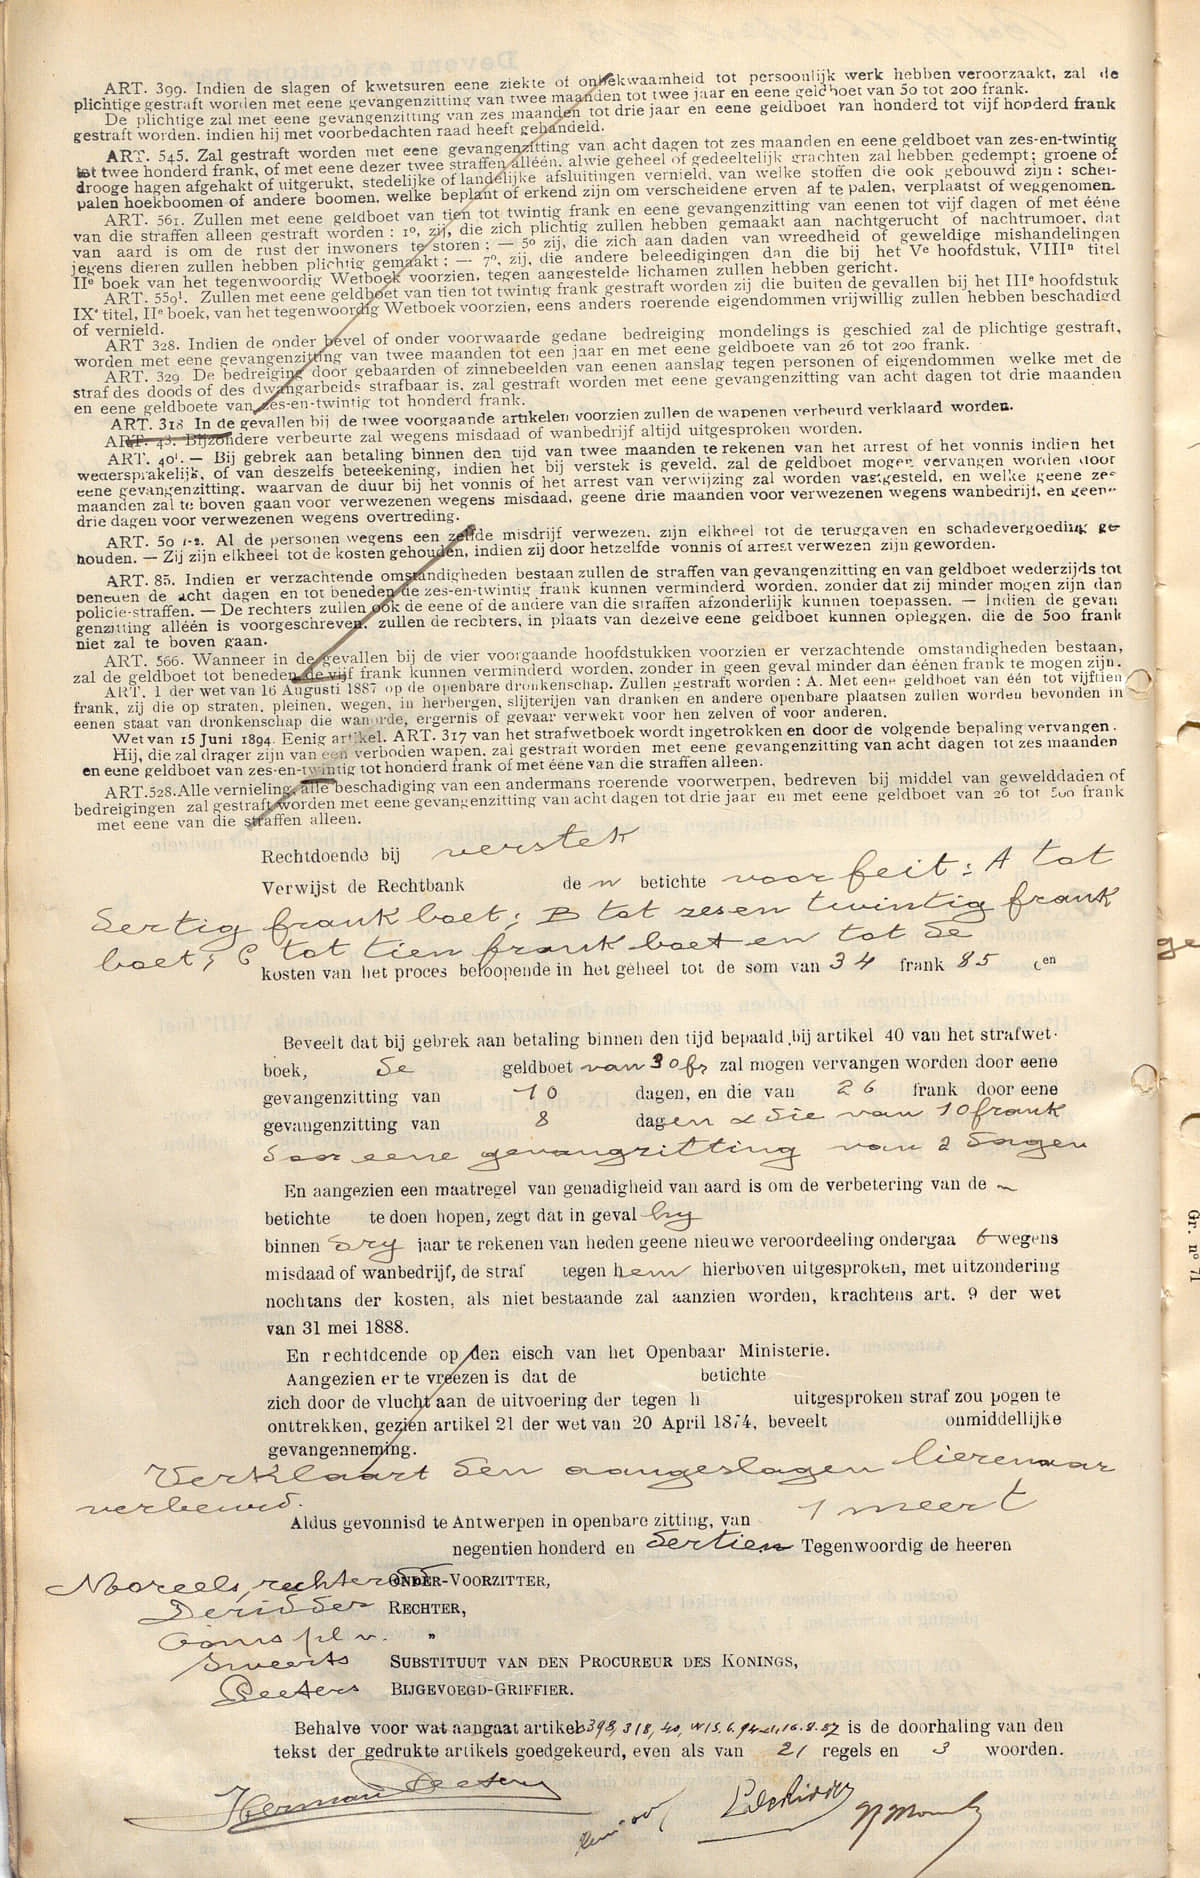 ART. 399. Indien de slagen of kwetsuren eene ziekte of onbekwaamheid tot persoonlijk werk hebben veroorzaakt, zal de
plichtige gestraft worden met eene gevangenzitting van twee maanden tot twee jaar en eene geldboet van 50 tot 200 frank.
De plichtige zal met eene gevangenzitting van zes maanden tot drie jaar en eene geldboet van honderd tot vijf honderd frank
gestraft worden, indien hij met voorbedachten raad heeft gehandeld.
ART. 545. Zal gestraft worden met eene gevangenzitting van acht dagen tot zes maanden en eene geldboet van zes-en-twintig
tot twee honderd frank, of met eene dezer twee straffen alléén, alwie geheel of gedeeltelijk grachten zal hebben gedempt; groene of
drooge hagen afgehakt of uitgerukt, stedelijke of landelijke afsluitingen vernield, van welke stoffen die ook gebouwd zijn : schei-
palen hoekboomen of andere boomen, welke beplant of erkend zijn om verscheidene erven af te palen, verplaatst of weggenomen.
ART. 561. Zullen met eene geldboet van tien tot twintig frank en eene gevangenzitting van eenen tot vijf dagen of met ééne
van die straffen alleen gestraft worden : 1º, zij, die zich plichtig zullen hebben gemaakt aan nachtgerucht of nachtrumoer, dat
van aard is om de rust der inwoners te storen ; — 5º zij, die zich aan daden van wreedheid of geweldige mishandelingen
jegens dieren zullen hebben plichtig gemaakt : — 7º, zij, die andere beleedigingen dan die bij het Ve hoofdstuk, VIIIn titel
IIe boek van het tegenwoordig Wetboek voorzien, tegen aangestelde lichamen zullen hebben gericht.
ART. 559¹. Zullen met eene geldboet van tien tot twintig frank gestraft worden zij die buiten de gevallen bij het IIIe hoofdstuk
IXe titel, IIe boek, van het tegenwoordig Wetboek voorzien, eens anders roerende eigendommen vrijwillig zullen hebben beschadigd
of vernield.
ART 328. Indien de onder bevel of onder voorwaarde gedane bedreiging mondelings is geschied zal de plichtige gestraft,
worden met eene gevangenzitting van twee maanden tot een jaar en met eene geldboete van 26 tot 200 frank.
ART. 329 De bedreiging door gebaarden of zinnebeelden van eenen aanslag tegen personen of eigendommen welke met de
straf des doods of des dwangarbeids strafbaar is, zal gestraft worden met eene gevangenzitting van acht dagen tot drie maanden
en eene geldboete van zes-en-twintig tot honderd frank.
ART. 318 In de gevallen bij de twee voorgaande artikelen voorzien zullen de wapenen verbeurd verklaard worden.
ART. 43. Bijzondere verbeurte zal wegens misdaad of wanbedrijf altijd uitgesproken worden.
ART. 40¹. — Bij gebrek aan betaling binnen den tijd van twee maanden te rekenen van het arrest of het vonnis indien het
wedersprakelijk, of van deszelfs beteekening, indien het bij verstek is geveld, zal de geldboet mogen vervangen worden door
eene gevangenzitting, waarvan de duur bij het vonnis of het arrest van verwijzing zal worden vastgesteld, en welke geene zes
maanden zal te boven gaan voor verwezenen wegens misdaad, geene drie maanden voor verwezenen wegens wanbedrijf, en geene
drie dagen voor verwezenen wegens overtreding.
ART. 50 1-2. Al de personen wegens een zelfde misdrijf verwezen, zijn elkheel tot de teruggaven en schadevergoeding ge-
houden. — Zij zijn elkheel tot de kosten gehouden, indien zij door hetzelfde vonnis of arrest verwezen zijn geworden.
ART. 85. Indien er verzachtende omstandigheden bestaan zullen de straffen van gevangenzitting en van geldboet wederzijds tot
beneden de acht dagen en tot beneden de zes-en-twintig frank kunnen verminderd worden, zonder dat zij minder mogen zijn dan
policie-straffen. — De rechters zullen ook de eene of de andere van die straffen afzonderlijk kunnen toepassen. — Indien de gevan
genzitting alléén is voorgeschreven, zullen de rechters, in plaats van dezelve eene geldboet kunnen opleggen, die de 500 frank
niet zal te boven gaan.
ART. 566. Wanneer in de gevallen bij de vier voorgaande hoofdstukken voorzien er verzachtende omstandigheden bestaan,
zal de geldboet tot beneden de vijf frank kunnen verminderd worden, zonder in geen geval minder dan éénen frank te mogen zijn.
ART. 1 der wet van 16 Augusti 1887 op de openbare dronkenschap. Zullen gestraft worden : A. Met eene geldboet van één tot vijftien
frank, zij die op straten, pleinen, wegen, in herbergen, slijterijen van dranken en andere openbare plaatsen zullen worden bevonden in
eenen staat van dronkenschap die wanorde, ergernis of gevaar verwekt voor hen zelven of voor anderen.
Wet van 15 Juni 1894. Eenig artikel. ART. 317 van het strafwetboek wordt ingetrokken en door de volgende bepaling vervangen.
Hij, die zal drager zijn van een verboden wapen, zal gestraft worden met eene gevangenzitting van acht dagen tot zes maanden
en eene geldboet van zes-en-twintig tot honderd frank of met ééne van die straffen alleen.
ART.528. Alle vernieling, alle beschadiging van een andermans roerende voorwerpen, bedreven bij middel van gewelddaden of
bedreigingen zal gestraft worden met eene gevangenzitting van acht dagen tot drie jaar en met eene geldboet van 26 tot 500 frank
met eene van die straffen alleen.
Rechtdoende bij verstek
Verwijst de Rechtbank den betichte voor feit : A tot
dertig frank boet ; B tot zesen twintig frank
boet ; C tot tien frank boet en tot de
kosten van het proces beloopende in het geheel tot de som van 34 frank 85 cen
Beveelt dat bij gebrek aan betaling binnen den tijd bepaald bij artikel 40 van het strafwet-
boek, de geldboet van 30 fr zal mogen vervangen worden door eene
gevangenzitting van 10 dagen, en die van 26 frank door eene
gevangenzitting van 8 dagen & die van 10 frank
door eene gevangzitting van 2 dagen
En aangezien een maatregel van genadigheid van aard is om de verbetering van de n
betichte te doen hopen, zegt dat in geval hy
binnen dry jaar te rekenen van heden geene nieuwe veroordeeling ondergaat wegens
misdaad of wanbedrijf, de straf tegen hem hierboven uitgesproken, met uitzondering
nochtans der kosten, als niet bestaande zal aanzien worden, krachtens art. 9 der wet
van 31 mei 1888.
En rechtdoende op den eisch van het Openbaar Ministerie.
Aangezien er te vreezen is dat de betichte
zich door de vlucht aan de uitvoering der tegen h uitgesproken straf zou pogen te
onttrekken, gezien artikel 21 der wet van 20 April 1874, beveelt onmiddellijke
gevangenneming.
Verklaart den aangeslagen lierenaar
verbeurd.
Aldus gevonnisd te Antwerpen in openbare zitting, van 1 meert
negentien honderd en dertien Tegenwoordig de heeren
Moreels, rechter dd ONDER-VOORZITTER,
Deridder RECHTER,
Ooms pl. r. "
Sweerts SUBSTITUUT VAN DEN PROCUREUR DES KONINGS,
Peeters BIJGEVOEGD-GRIFFIER.
Behalve voor wat aangaat artikels 398, 318, 40, W 15.6.94 1, 16.8.87 is de doorhaling van den
tekst der gedrukte artikels goedgekeurd, even als van 21 regels en 3 woorden.
Herman Peeters
L. deRidder
Gr. nº 71